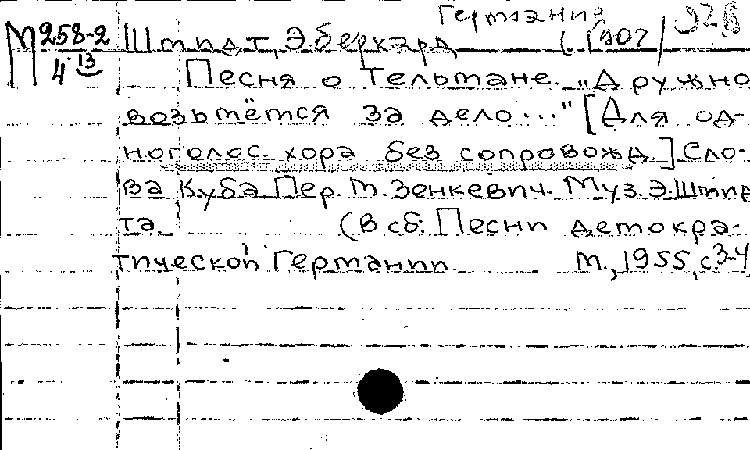 Германия
М 258-2 Шмидт, Эберкард (1907)
4 13 Песня о Тельмане. „Дружно
возьмёмся за дело..." [Для од-
ноголос. хора без сопровожд.] Сло-
ва Куба. Пер. М. Зенкевич. Муз. Э. Шмид-
та. (В сб: Песни демокра-
тической Германии М., 1955, с 3-4